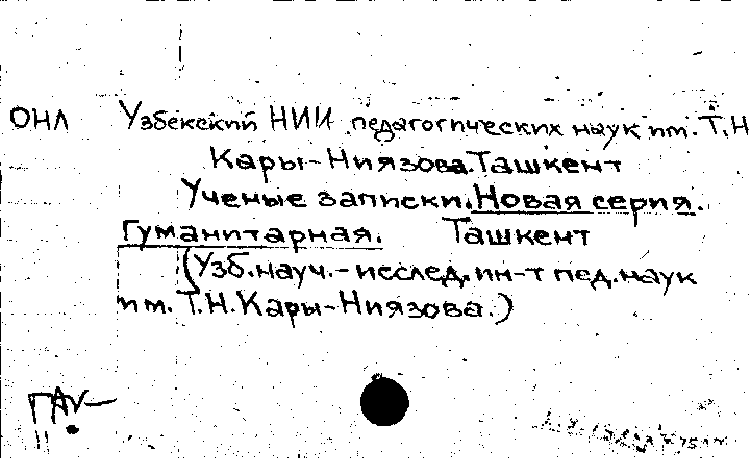 ОНЛ Узбекский НИИ педагогических наук им. Т.Н
Кары-Ниязова. Ташкент
Ученые записки. Новая серия.
Гуманитарная. Ташкент
(Узб. науч.-исслед. ин-т пед. наук
им. Т.Н. Кары-Ниязова.)